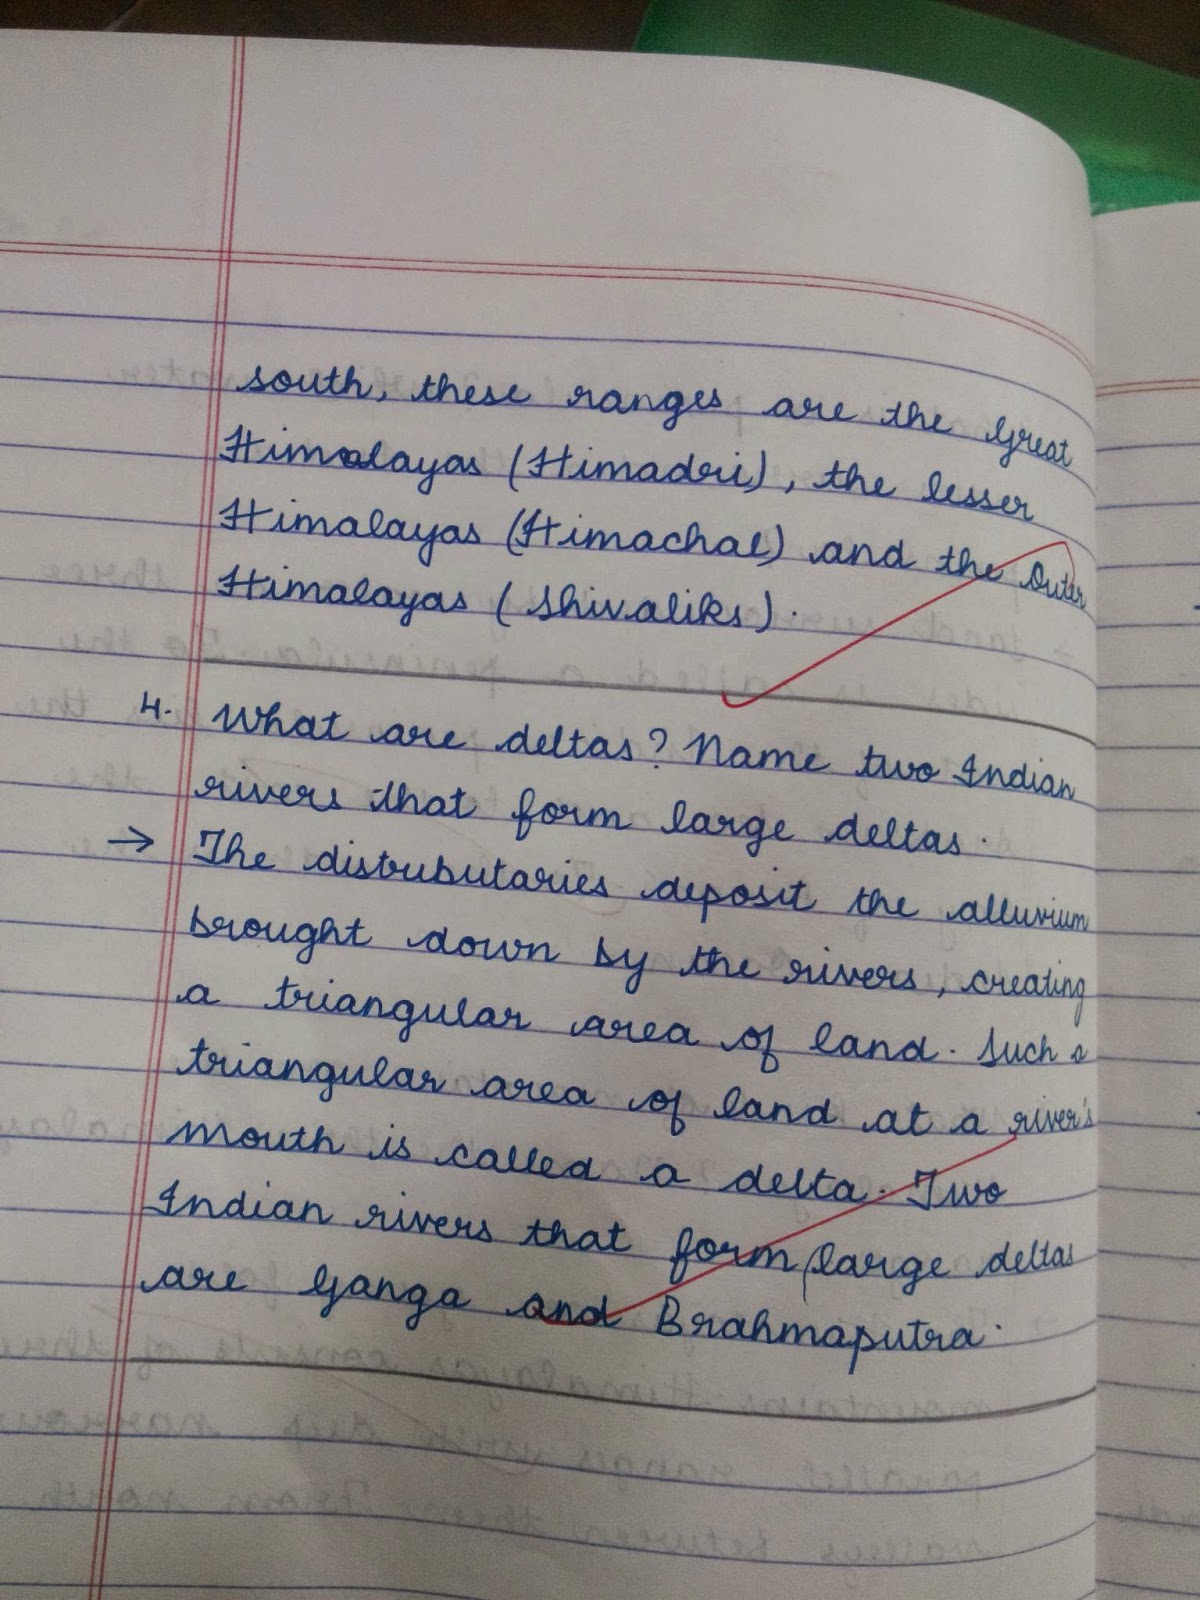 south, these ranges are the Great
Himalayas (Himadri), the lesser
Himalayas (Himachal) and the Outer
Himalayas (Shivaliks).
4. What are deltas? Name two Indian
rivers that form large deltas.
→ The distributaries deposit the alluvium
brought down by the rivers, creating
a triangular area of land. Such a
triangular area of land at a river's
mouth is called a delta. Two
Indian rivers that form large deltas
are Ganga and Brahmaputra.